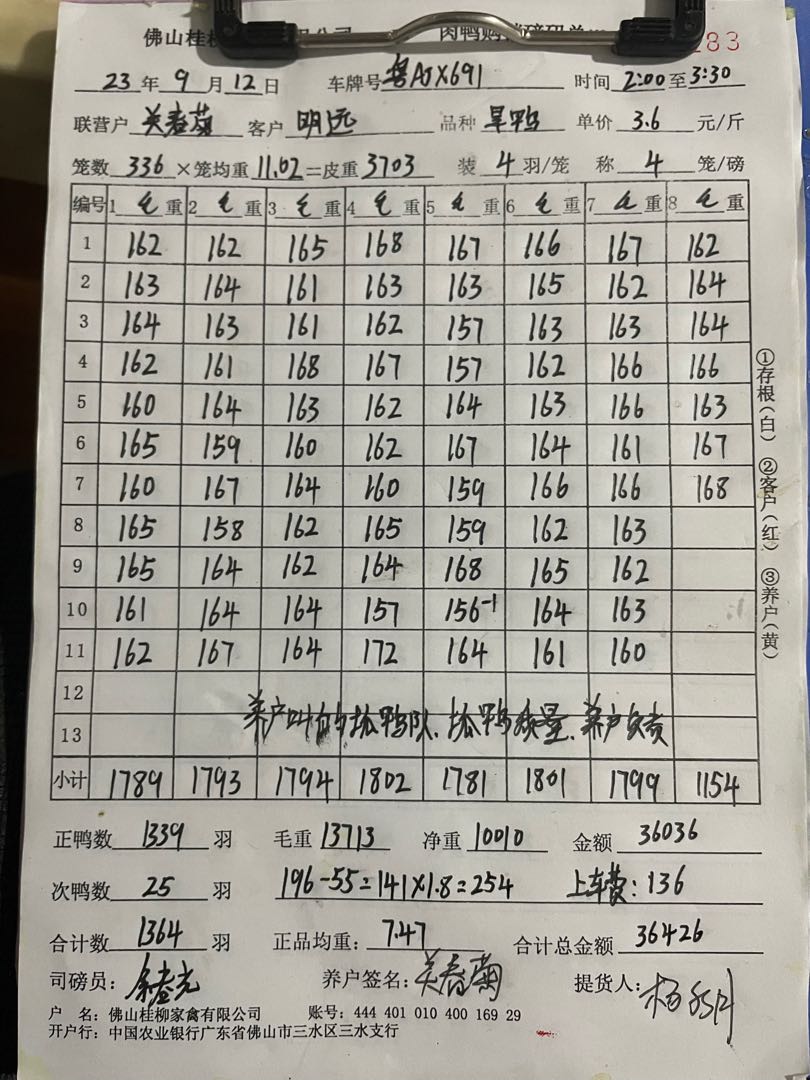 佛山桂柳 肉鸭购销磅码单 283
23年9月12日 车牌号 粤AJX691 时间 2:00至3:30
联营户 关春菊 客户 明远 品种 旱鸭 单价 3.6 元/斤
笼数 336 ×笼均重 11.02 =皮重 3703 装 4 羽/笼 称 4 笼/磅
编号 1 毛 重 2 毛 重 3 毛 重 4 毛 重 5 毛 重 6 毛 重 7 毛 重 8 毛 重
1 162 162 165 168 167 166 167 162
2 163 164 161 163 163 165 162 164
3 164 163 161 162 157 163 163 164
4 162 161 168 167 157 162 166 166
5 160 164 163 162 164 163 166 163
6 165 159 160 162 167 164 161 167
7 160 167 164 160 159 166 166 168
8 165 158 162 165 159 162 163
9 165 164 162 164 168 165 162
10 161 164 164 157 156-1 164 163
11 162 167 164 172 164 161 160
12
养户叫的抓鸭队、抓鸭质量、养户负责
13
小计 1789 1793 1794 1802 1781 1801 1799 1154
①存根(白) ②客户(红) ③养户(黄)
正鸭数 1339 羽 毛重 13713 净重 10010 金额 36036
次鸭数 25 羽 196-55=141×1.8=254 上车费:136
合计数 1364 羽 正品均重: 7.47 合计总金额 36426
司磅员: 养户签名: 关春菊 提货人:
户 名: 佛山桂柳家禽有限公司 账号: 444 401 010 400 169 29
开户行: 中国农业银行广东省佛山市三水区三水支行